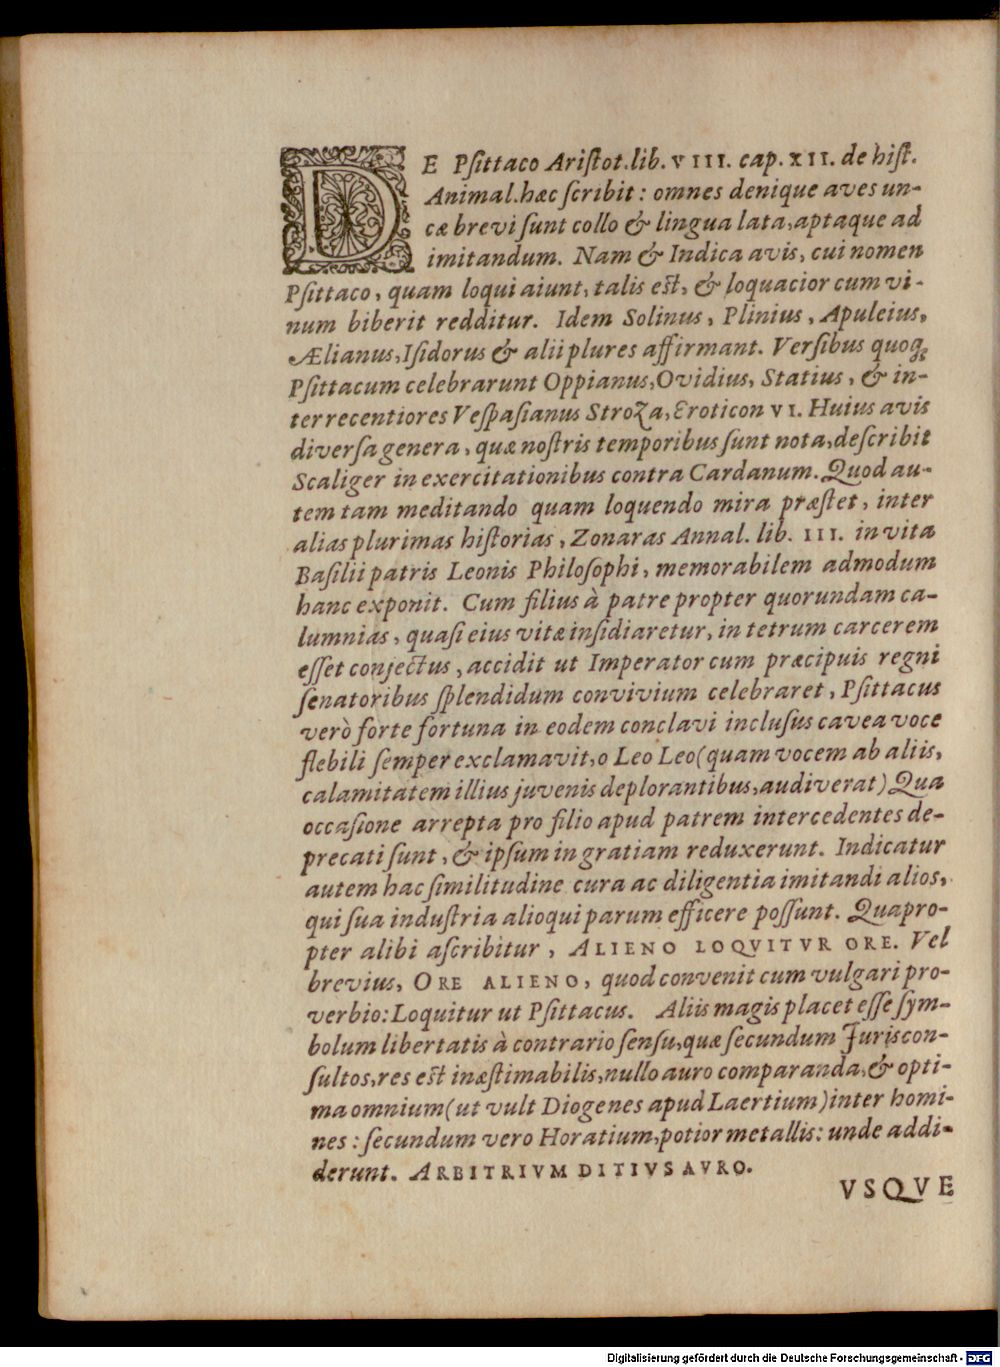 DE Psittaco Aristot. lib. VIII. cap. XII. de hist.
Animal. hæc scribit: omnes denique aves un-
cæ brevi sunt collo & lingua lata, aptaque ad
imitandum. Nam & Indica avis, cui nomen
Psittaco, quam loqui aiunt, talis est, & loquacior cum vi-
num biberit redditur. Idem Solinus, Plinius, Apuleius,
Ælianus, Isidorus & alii plures affirmant. Versibus quoq;
Psittacum celebrarunt Oppianus, Ovidius, Statius, & in-
ter recentiores Vespasianus Stroza, Eroticon VI. Huius avis
diversa genera, quæ nostris temporibus sunt nota, describit
Scaliger in exercitationibus contra Cardanum. Quod au-
tem tam meditando quam loquendo mira præstet, inter
alias plurimas historias, Zonaras Annal. lib. III. in vita
Basilii patris Leonis Philosophi, memorabilem admodum
hanc exponit. Cum filius à patre propter quorundam ca-
lumnias, quasi eius vitæ insidiaretur, in tetrum carcerem
esset conjectus, accidit ut Imperator cum præcipuis regni
senatoribus splendidum convivium celebraret, Psittacus
verò forte fortuna in eodem conclavi inclusus cavea voce
flebili semper exclamavit, o Leo Leo (quam vocem ab aliis,
calamitatem illius juvenis deplorantibus, audiverat) Qua
occasione arrepta pro filio apud patrem intercedentes de-
precati sunt, & ipsum in gratiam reduxerunt. Indicatur
autem hac similitudine cura ac diligentia imitandi alios,
qui sua industria alioqui parum efficere possunt. Quapro-
pter alibi ascribitur, ALIENO LOQVITVR ORE. Vel
brevius, ORE ALIENO, quod convenit cum vulgari pro-
verbio: Loquitur ut Psittacus. Aliis magis placet esse sym-
bolum libertatis à contrario sensu, quæ secundum Juriscon-
sultos, res est inæstimabilis, nullo auro comparanda, & opti-
ma omnium (ut vult Diogenes apud Laertium) inter homi-
nes: secundum vero Horatium, potior metallis: unde addi-
derunt. ARBITRIVM DITIVS AVRO.
VSQVE
Digitalisierung gefördert durch die Deutsche Forschungsgemeinschaft - DFG